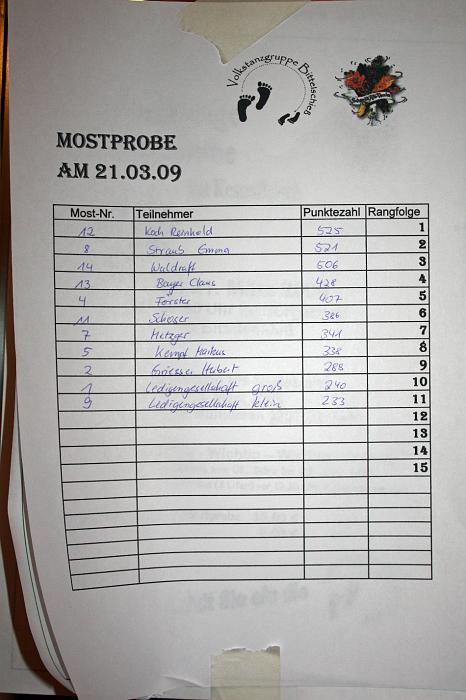 Volkstanzgruppe Bittelschieß
MOSTPROBE
AM 21.03.09
Most-Nr. Teilnehmer Punktezahl Rangfolge
12 Koch Reinhold 525 1
8 Straub Emma 521 2
14 Waldraff 506 3
13 Bauer Claus 428 4
4 Förster 407 5
11 Schoser 386 6
7 Metzger 341 7
5 Kempf Markus 338 8
2 Griesser Hubert 288 9
1 Ledigengesellschaft groß 240 10
9 Ledigengesellschaft klein 233 11
12
13
14
15